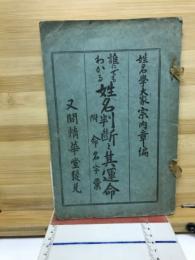 姓名學大家宗内章編
誰にでも
わかる
姓名判斷と其運命
附命名字彙
又間精華堂發兌